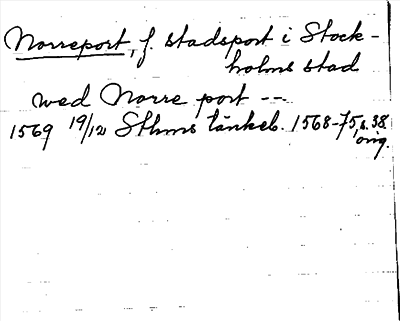 Norreport, f. stadsport i Stock-
holms stad
wed Norre port --
1569 19/12 Sthms tänkeb. 1568-75, s. 38.
orig.